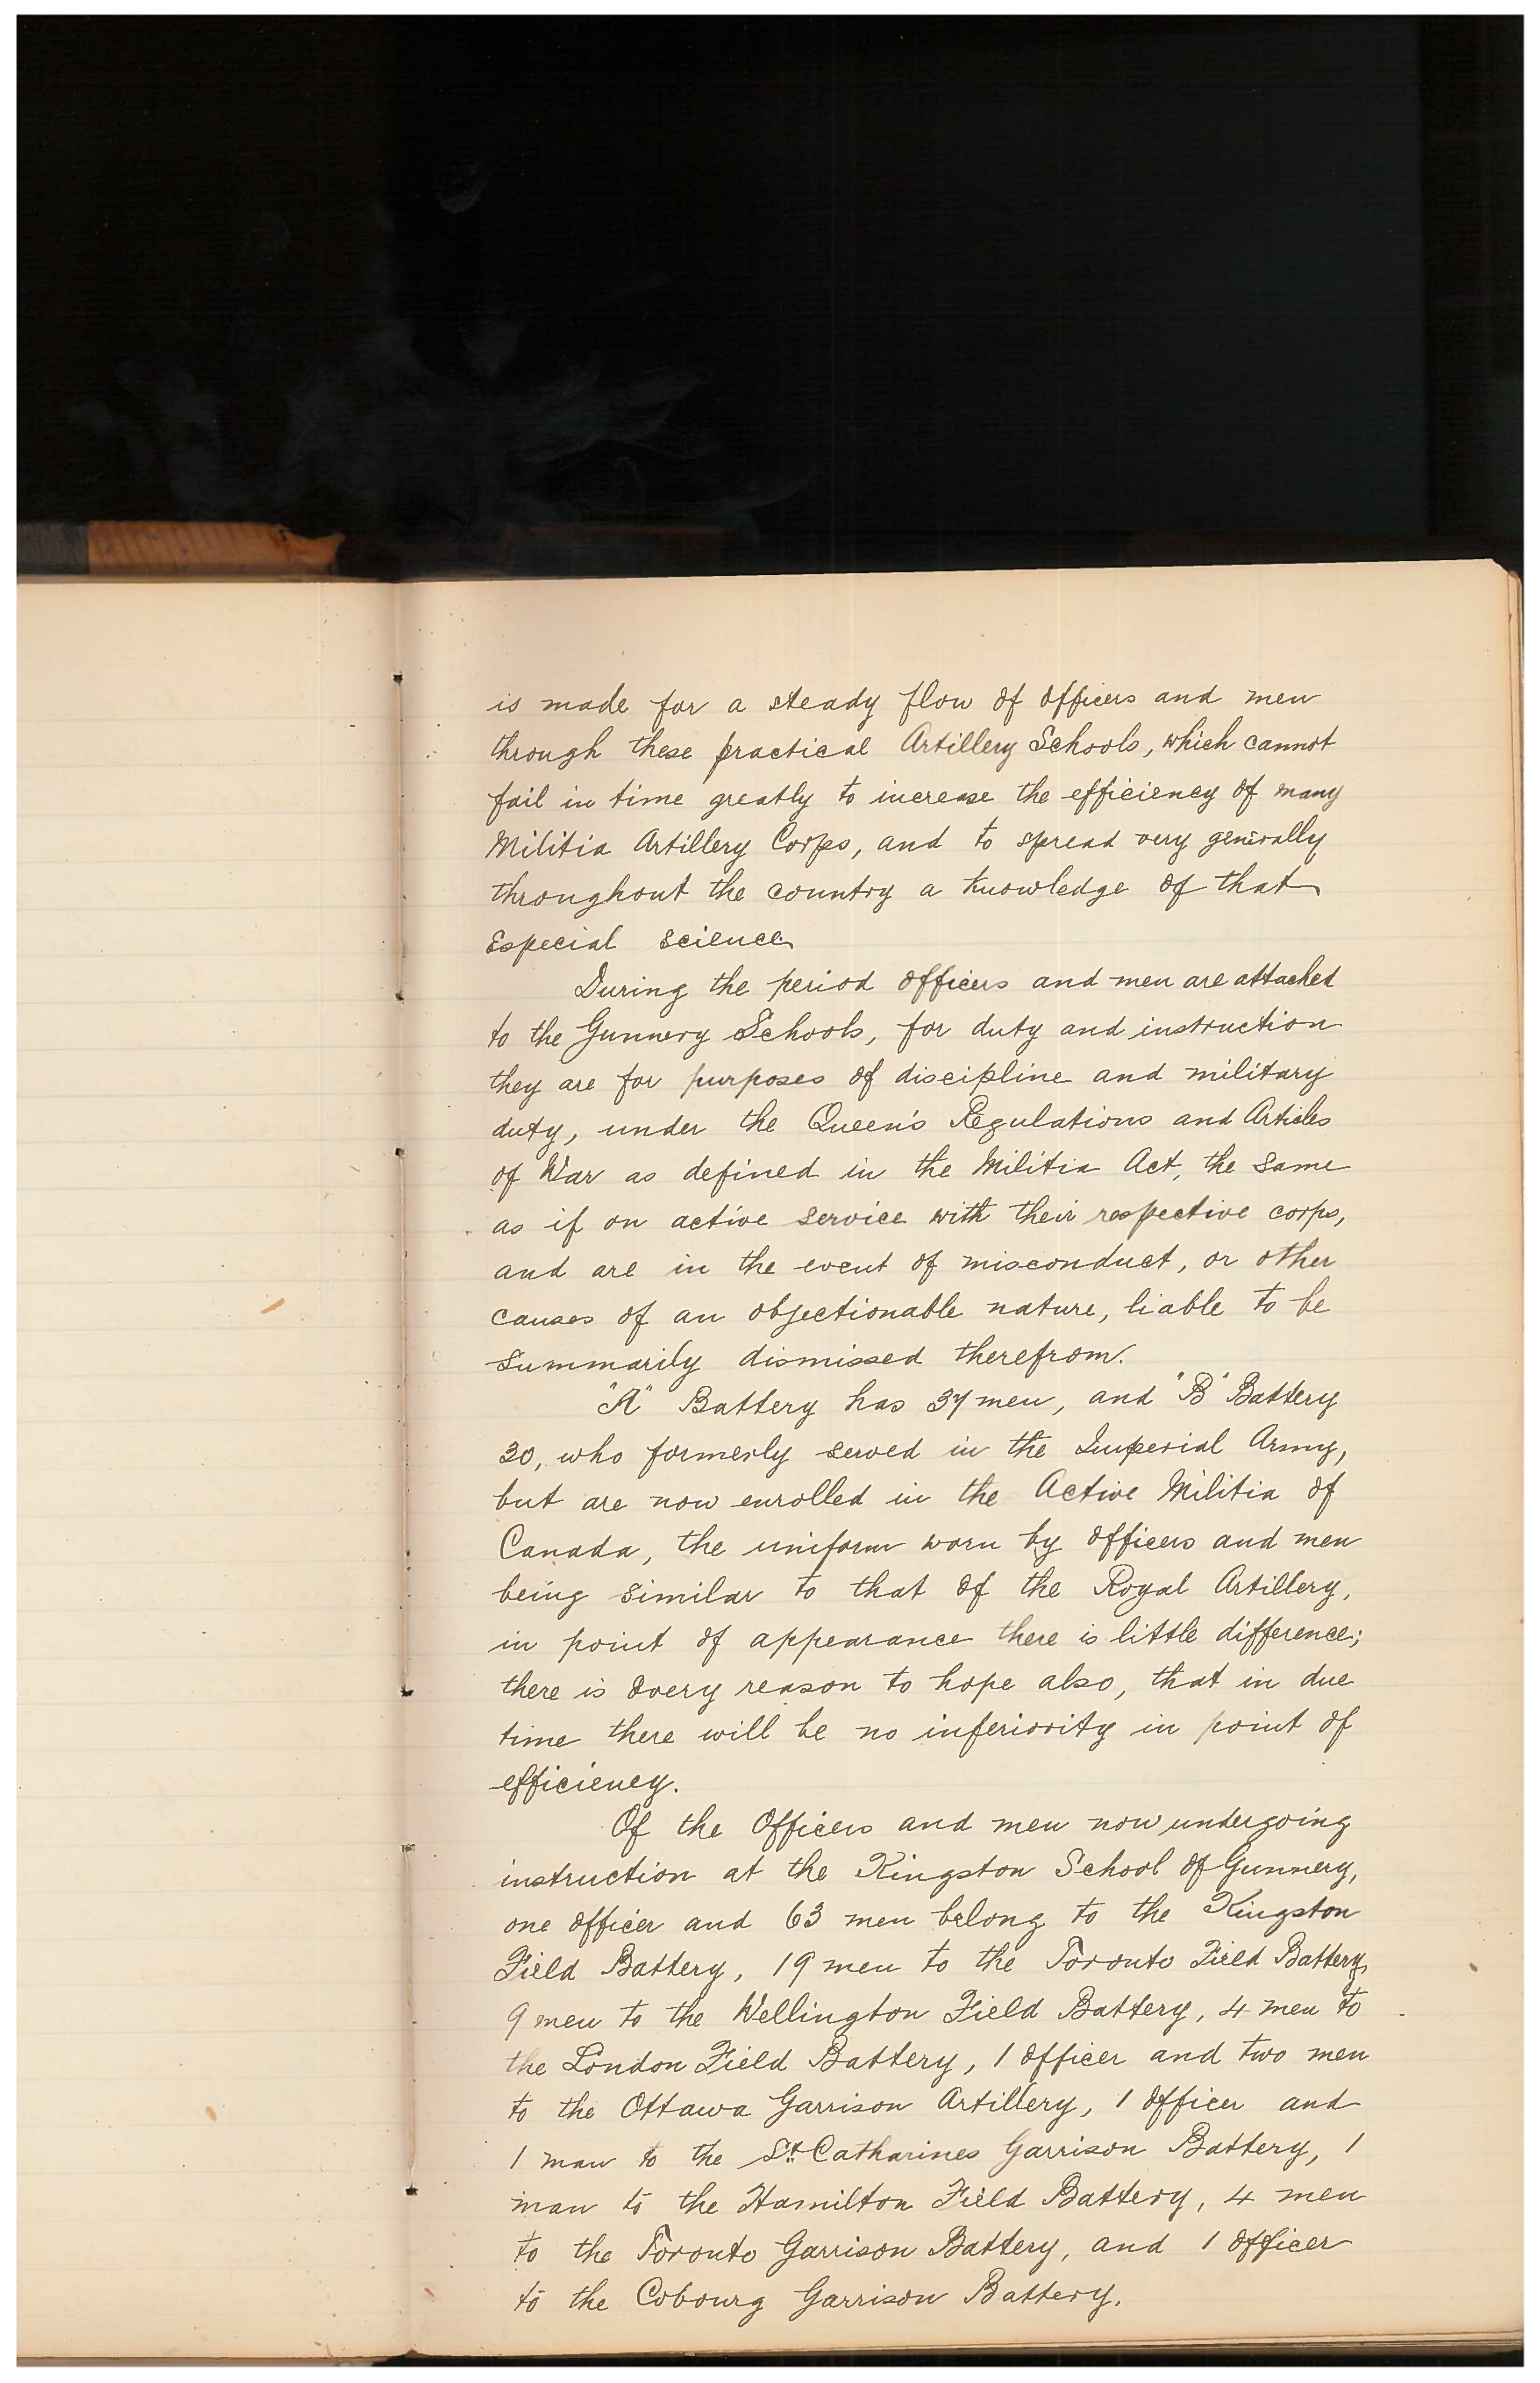 is made for a steady flow of officers and men
through these practical Artillery Schools, which cannot
fail in time greatly to increase the efficiency of many
Militia Artillery Corps, and to spread very generally
throughout the country a knowledge of that
especial science.
During the period officers and men are attached
to the Gunnery Schools, for duty and instruction
they are for purposes of discipline and military
duty, under the Queen's Regulations and Articles
of War as defined in the Militia Act, the same
as if on active service with their respective corps,
and are in the event of misconduct, or other
causes of an objectionable nature, liable to be
summarily dismissed therefrom.
"A" Battery has 37 men, and "B" Battery
30, who formerly served in the Imperial Army,
but are now enrolled in the Active Militia of
Canada, the uniform worn by officers and men
being similar to that of the Royal Artillery,
in point of appearance there is little difference;
there is every reason to hope also, that in due
time there will be no inferiority in point of
efficiency.
Of the Officers and men now undergoing
instruction at the Kingston School of Gunnery,
one officer and 63 men belong to the Kingston
Field Battery, 19 men to the Toronto Field Battery,
9 men to the Wellington Field Battery, 4 men to
the London Field Battery, 1 officer and two men
to the Ottawa Garrison Artillery, 1 officer and
1 man to the St. Catharines Garrison Battery, 1
man to the Hamilton Field Battery, 4 men
to the Toronto Garrison Battery, and 1 officer
to the Cobourg Garrison Battery.